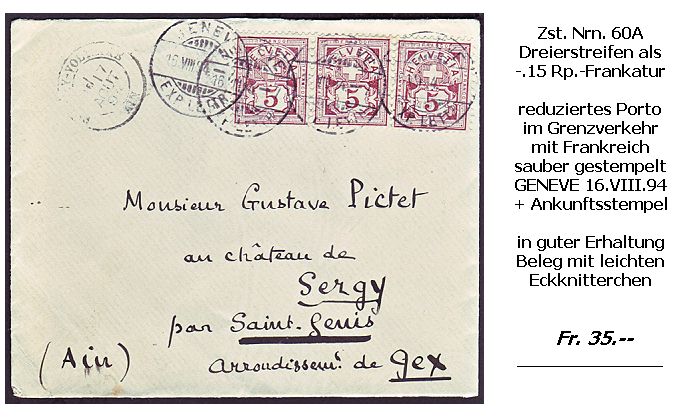 GENEVE
16.VIII.94
EXP. LETTR.
HELVETIA HELVETIA HELVETIA
5 5 5
Monsieur Gustave Pictet
au château de
Sergy
par Saint-Genis
(Ain) arrondissemt. de Gex
Zst. Nrn. 60A
Dreierstreifen als
-.15 Rp.-Frankatur
reduziertes Porto
im Grenzverkehr
mit Frankreich
sauber gestempelt
GENEVE 16.VIII.94
+ Ankunftsstempel
in guter Erhaltung
Beleg mit leichten
Eckknitterchen
Fr. 35.--